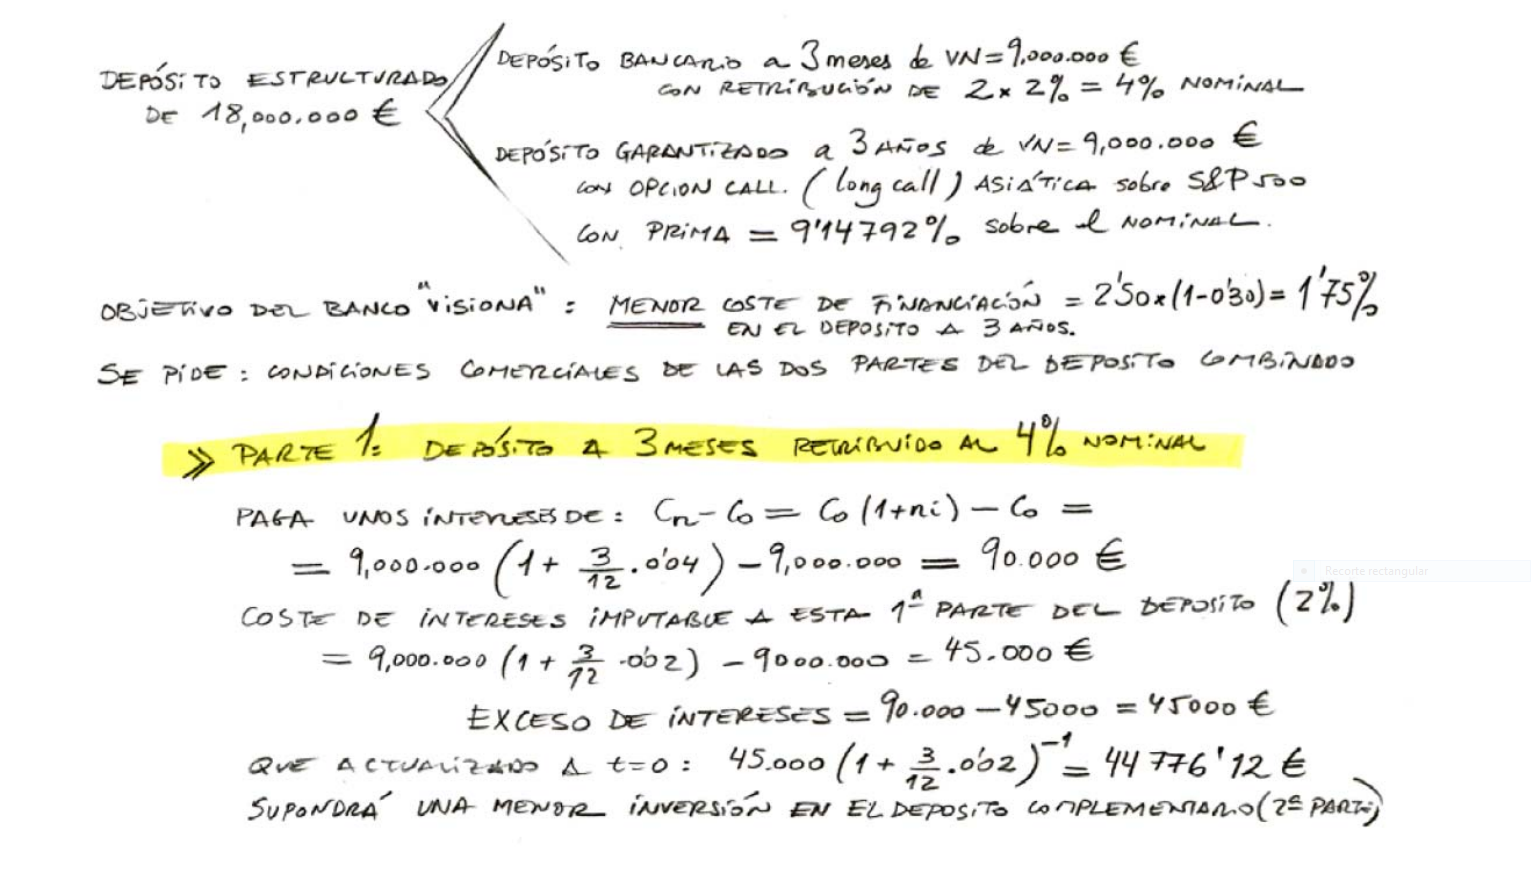 DEPÓSITO ESTRUCTURADO
DE 18,000.000 €
DEPÓSITO BANCARIO a 3 meses de VN=9,000.000 €
CON RETRIBUCIÓN DE 2 x 2% = 4% NOMINAL
DEPÓSITO GARANTIZADO a 3 AÑOS de VN=9,000.000 €
CON OPCION CALL. (long call) ASIÁTICA sobre S&P 500
CON PRIMA = 9'14792% sobre el NOMINAL.
OBJETIVO DEL BANCO "VISIONA" : MENOR COSTE DE FINANCIACIÓN = 2'50x(1-0'30)= 1'75%
EN EL DEPOSITO A 3 AÑOS.
SE PIDE : CONDICIONES COMERCIALES DE LAS DOS PARTES DEL DEPOSITO COMBINADO
>> PARTE 1: DEPÓSITO A 3 MESES RETRIBUIDO AL 4% NOMINAL
PAGA UNOS INTERESES DE : Cn - Co = Co (1+ni) - Co =
= 9,000.000 (1 + 3/12 . 0'04) - 9,000.000 = 90.000 €
COSTE DE INTERESES IMPUTABLE A ESTA 1ª PARTE DEL DEPOSITO (2%)
= 9,000.000 (1 + 3/12 . 0'02) - 9000.000 = 45.000 €
EXCESO DE INTERESES = 90.000 - 45000 = 45000 €
QUE ACTUALIZADO A t=0 : 45.000 (1 + 3/12 . 0'02)⁻¹ = 44776'12 €
SUPONDRÁ UNA MENOR INVERSIÓN EN EL DEPOSITO COMPLEMENTARIO (2ª PARTE)
Recorte rectangular